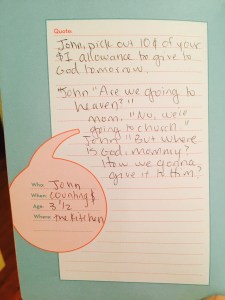 Quote:
John, pick out 10¢ of your
$1 allowance to give to
God tomorrow.
"John "Are we going to
heaven?"
mom. "No, we're
going to church"
John: "But where
is God, Mommy?
How we gonna
give it to Him?
Who: John
When: counting $
Age: 3 1/2
Where: the kitchen